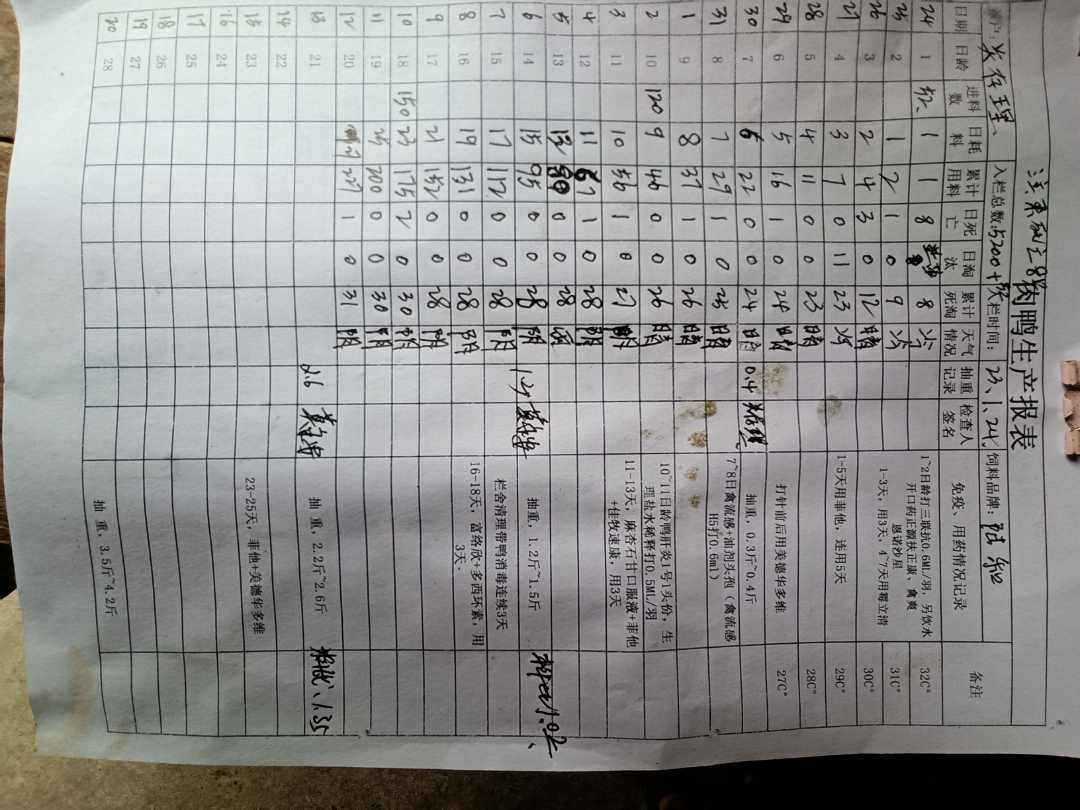 肉鸭生产报表
入栏总数:5200+ 入栏时间: 23、1、24 饲料品牌:
日期 日龄 进料数 日耗料 累计用料 日死亡 日淘汰 累计死淘 天气情况 抽重记录 检查人签名 免疫、用药情况记录 备注
24 1 1 1 8 8 1~2日龄打三联抗0.6ML/羽,另饮水开口药正源扶正康、禽爽恩诺沙星 32C°
25 2 1 2 1 0 9 31C°
26 3 2 4 3 0 12 晴 1-3天,用3天,4~7天用霉立清 30C°
27 4 3 7 0 11 23 1-5天用菲他,连用5天 29C°
28 5 4 11 0 0 23 晴 28C°
29 6 5 16 1 0 24 晴 打针前后用美德华多维 27C°
30 7 6 22 0 0 24 晴 0.4 抽重,0.3斤~0.4斤
31 8 7 29 1 0 25 晴 7~8日禽流感+油剂头孢(禽流感H5打0.6ml)
1 9 8 37 1 0 26 晴
2 10 120 9 46 0 0 26 晴 10~11日龄鸭肝炎1号1头份,生理盐水稀释打0.5ML/羽
3 11 10 56 1 0 27 阴 11-13天,麻杏石甘口服液+菲他+佳牧速康,用3天
4 12 11 67 1 0 28 阴
5 13 13 80 0 0 28
6 14 15 95 0 0 28 阴 抽重,1.2斤~1.5斤
7 15 17 112 0 0 28 阴 栏舍清理带鸭消毒连续3天
8 16 19 131 0 0 28 阴 16-18天,富络欣+多西环素,用3天.
9 17 21 152 0 0 28 阴
10 18 150 23 175 2 0 30 阴
11 19 25 200 0 0 30 阴
12 20 27 227 1 0 31 阴
13 21 2.6 抽重,2.2斤~2.6斤 1.35
14 22
15 23 23-25天,菲他+美德华多维
16 24
17 25
18 26
19 27
20 28 抽重,3.5斤~4.2斤